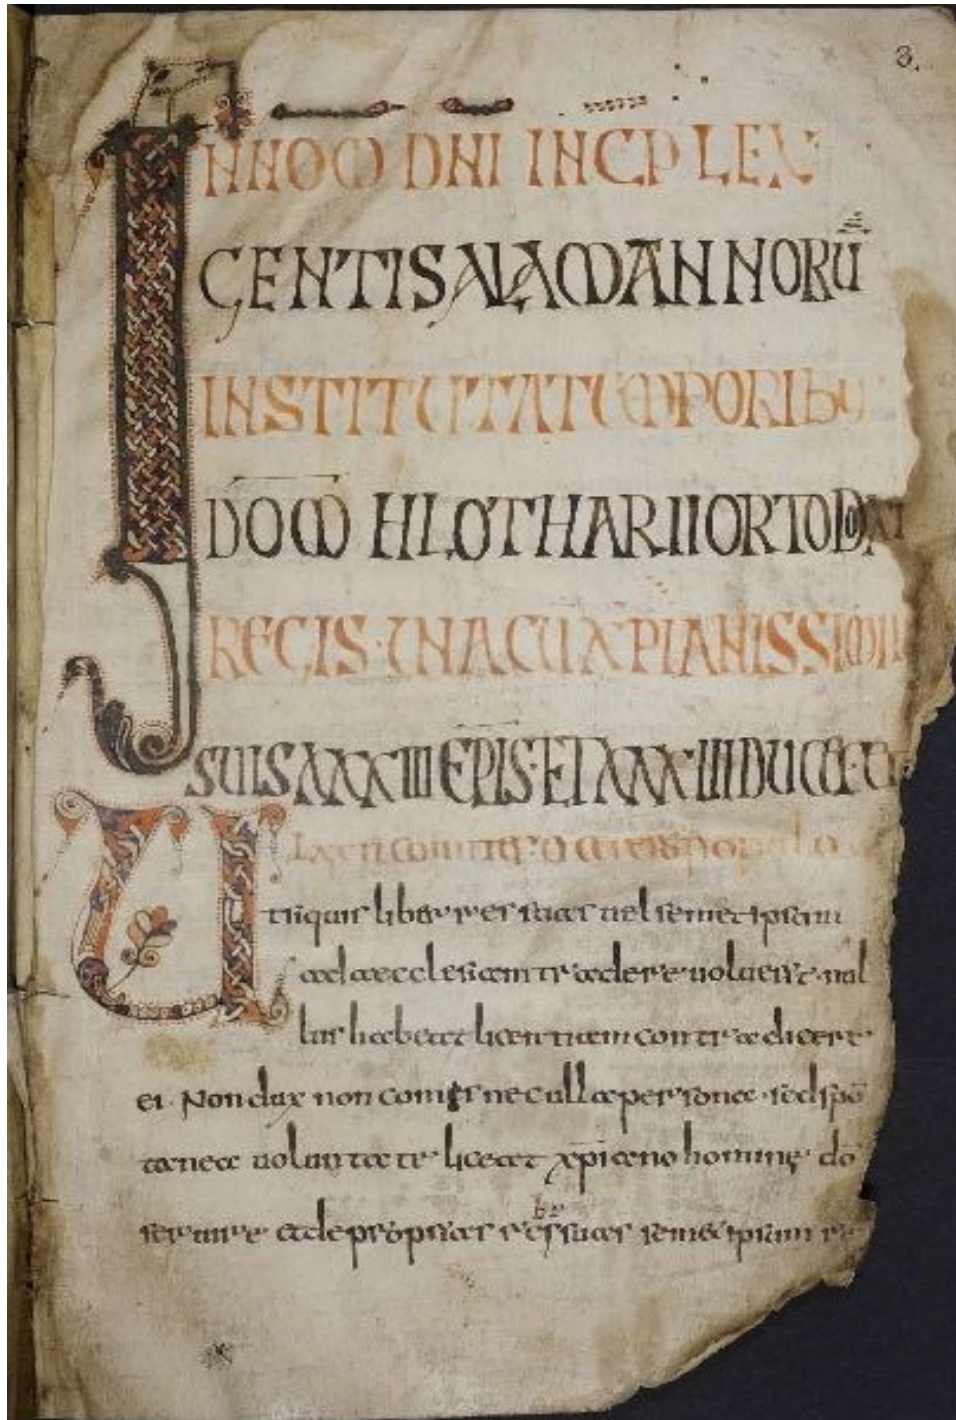 3.
IN NOM DNI INCP LEX
GENTIS ALAMANNORU
INSTITUTA TEMPORIBU
DOM HLOTHARII ORTODOXI
REGIS · UNA CU XPIANISSIMIS
SUIS XXXIII EPIS · ET XXXIIII DUCIB · ET
populo
Ut siquis liber res suas uel semetipsum
ad aecclesiam tradere uoluerit · nul
lus habeat licentiam contradicere
ei · Non dux non comis nec ulla persona · sed spo
tanea uoluntate liceat xpiano homine dō
seruire et de proprias res suas semetipsum re